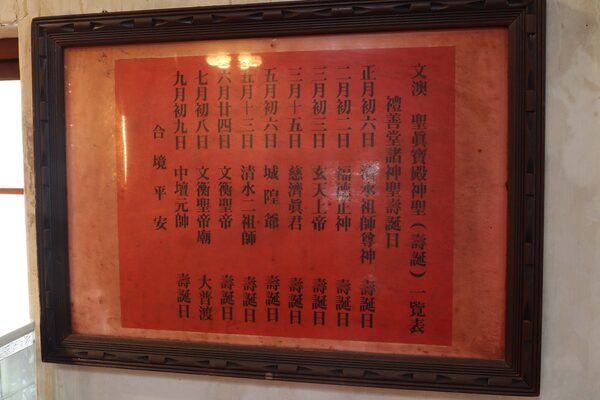 文澳 聖眞寶殿神聖(壽誕)一覽表
禮善堂諸神聖壽誕日
正月初六日 清水祖師尊神 壽誕日
二月初二日 福德正神 壽誕日
三月初三日 玄天上帝 壽誕日
三月十五日 慈濟眞君 壽誕日
五月初六日 城隍爺 壽誕日
五月十三日 清水二祖師 壽誕日
六月廿四日 文衡聖帝 壽誕日
七月初八日 文衡聖帝廟 大普渡
九月初九日 中壇元帥 壽誕日
合境平安